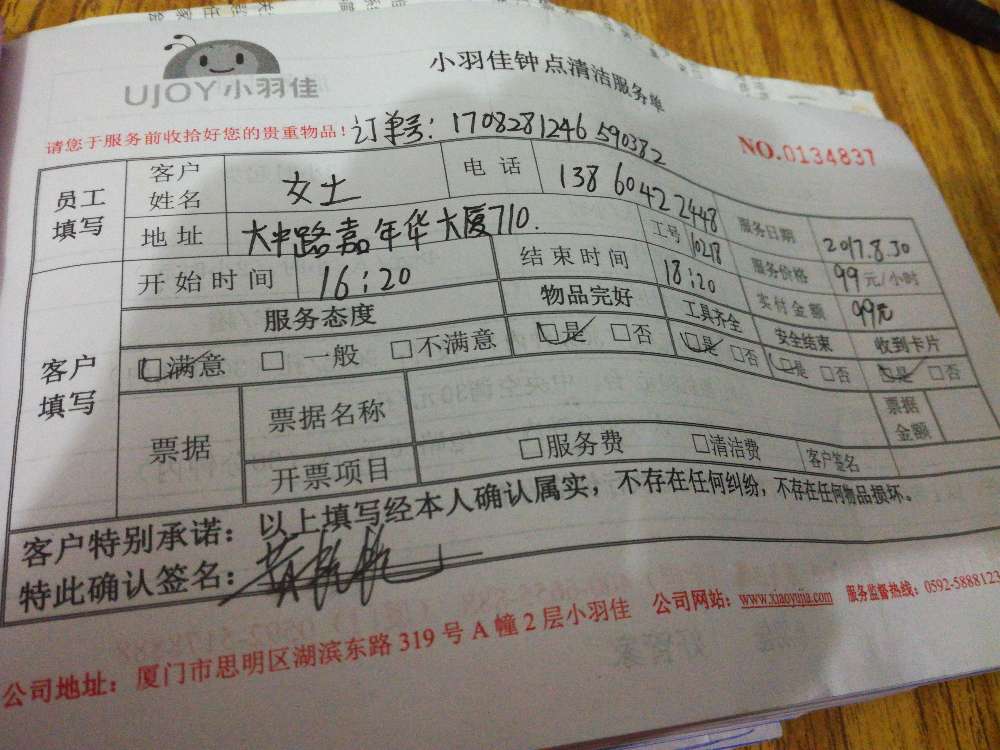 UJOY小羽佳
小羽佳钟点清洁服务单
请您于服务前收拾好您的贵重物品! 订单号: 1708281246590382
NO.0134837
员工填写 客户姓名 女士 电话 13860422448 服务日期 2017.8.30
地址 大中路嘉年华大厦710. 工号 10218 服务价格 99元/小时
客户填写 开始时间 16:20 结束时间 18:20 实付金额 99元
服务态度 物品完好 工具齐全 安全结束 收到卡片
☑满意 □一般 □不满意 ☑是 □否 ☑是 □否 ☑是 □否 ☑是 □否
票据 票据名称 票据金额
开票项目 □服务费 □清洁费 客户签名
客户特别承诺: 以上填写经本人确认属实,不存在任何纠纷,不存在任何物品损坏。
特此确认签名:
公司地址: 厦门市思明区湖滨东路319号A幢2层小羽佳 公司网站: www.xiaoyujia.com 服务监督热线: 0592-5888123